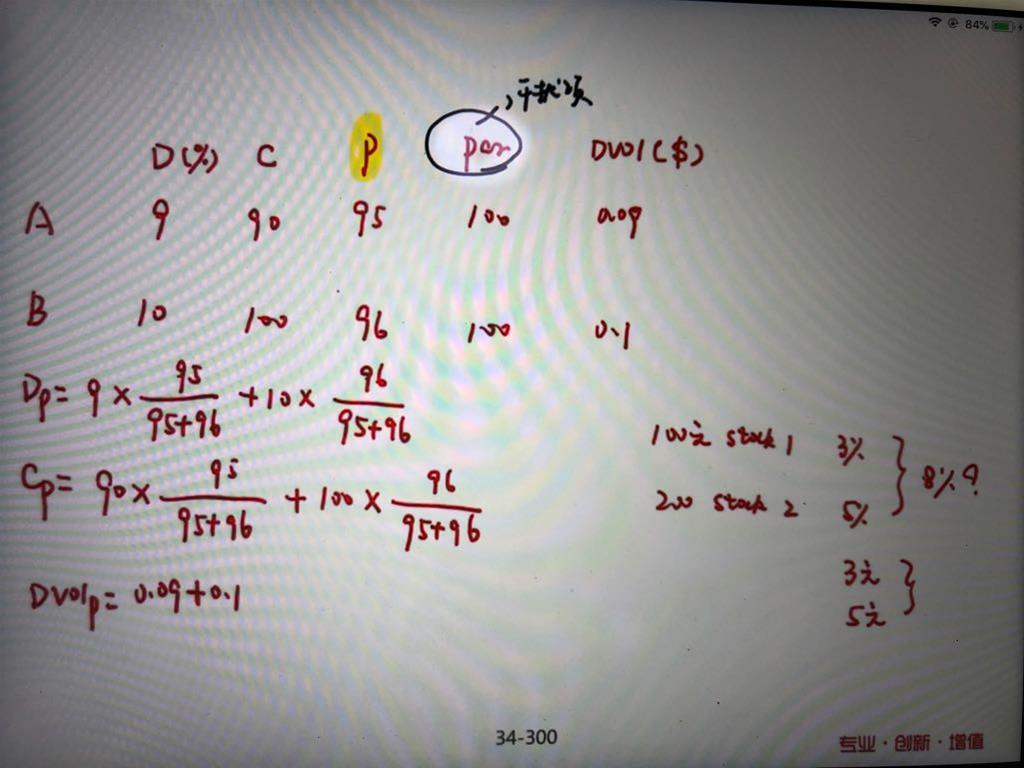 84%
干扰项
D(%) C P par DV01($)
A 9 90 95 100 0.09
B 10 100 96 100 0.1
Dp= 9 × 95/(95+96) + 10 × 96/(95+96)
100元 stock 1 3%
Cp= 90 × 95/(95+96) + 100 × 96/(95+96)
8%?
200 stock 2 5%
3元
DV01p= 0.09+0.1
5元
34-300
专业·创新·增值